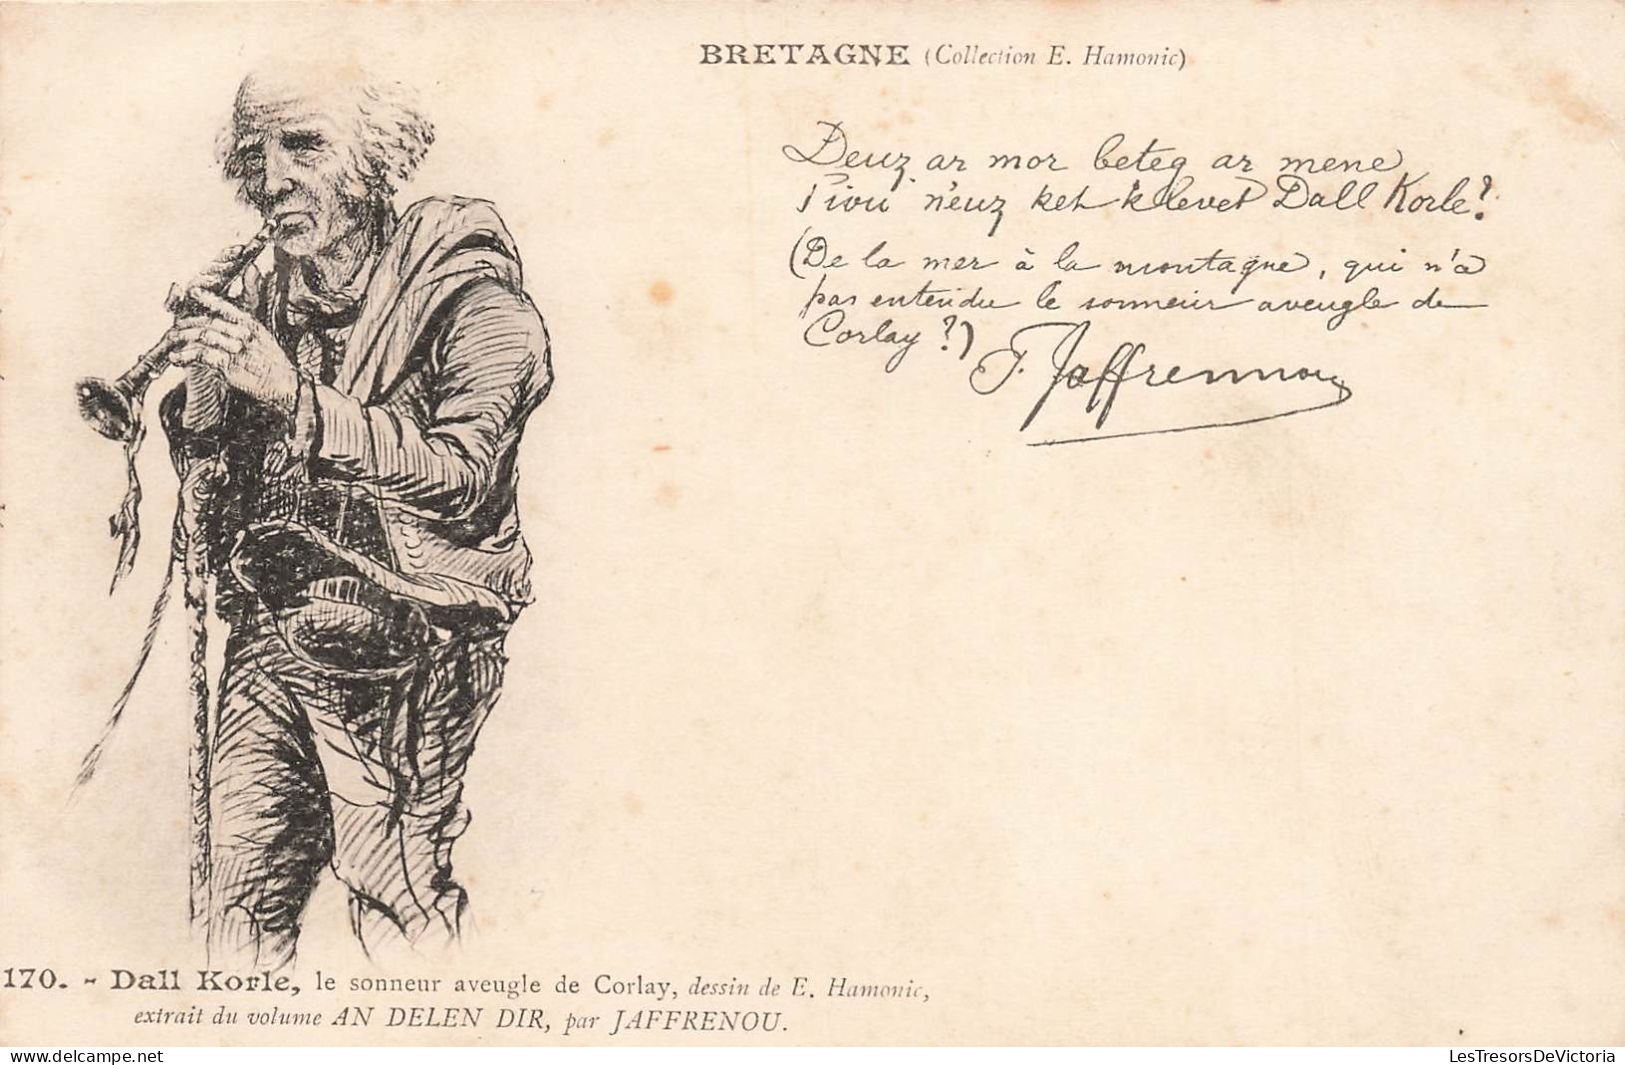 BRETAGNE (Collection E. Hamonic)
Deuz ar mor beteg ar mene
Piou n'euz ket klevet Dall Korle?
(De la mer à la montagne, qui n'a
pas entendu le sonneur aveugle de
Corlay?)
F. Jaffrennou
170. - Dall Korle, le sonneur aveugle de Corlay, dessin de E. Hamonic,
extrait du volume AN DELEN DIR, par JAFFRENOU.
LesTresorsDeVictoria